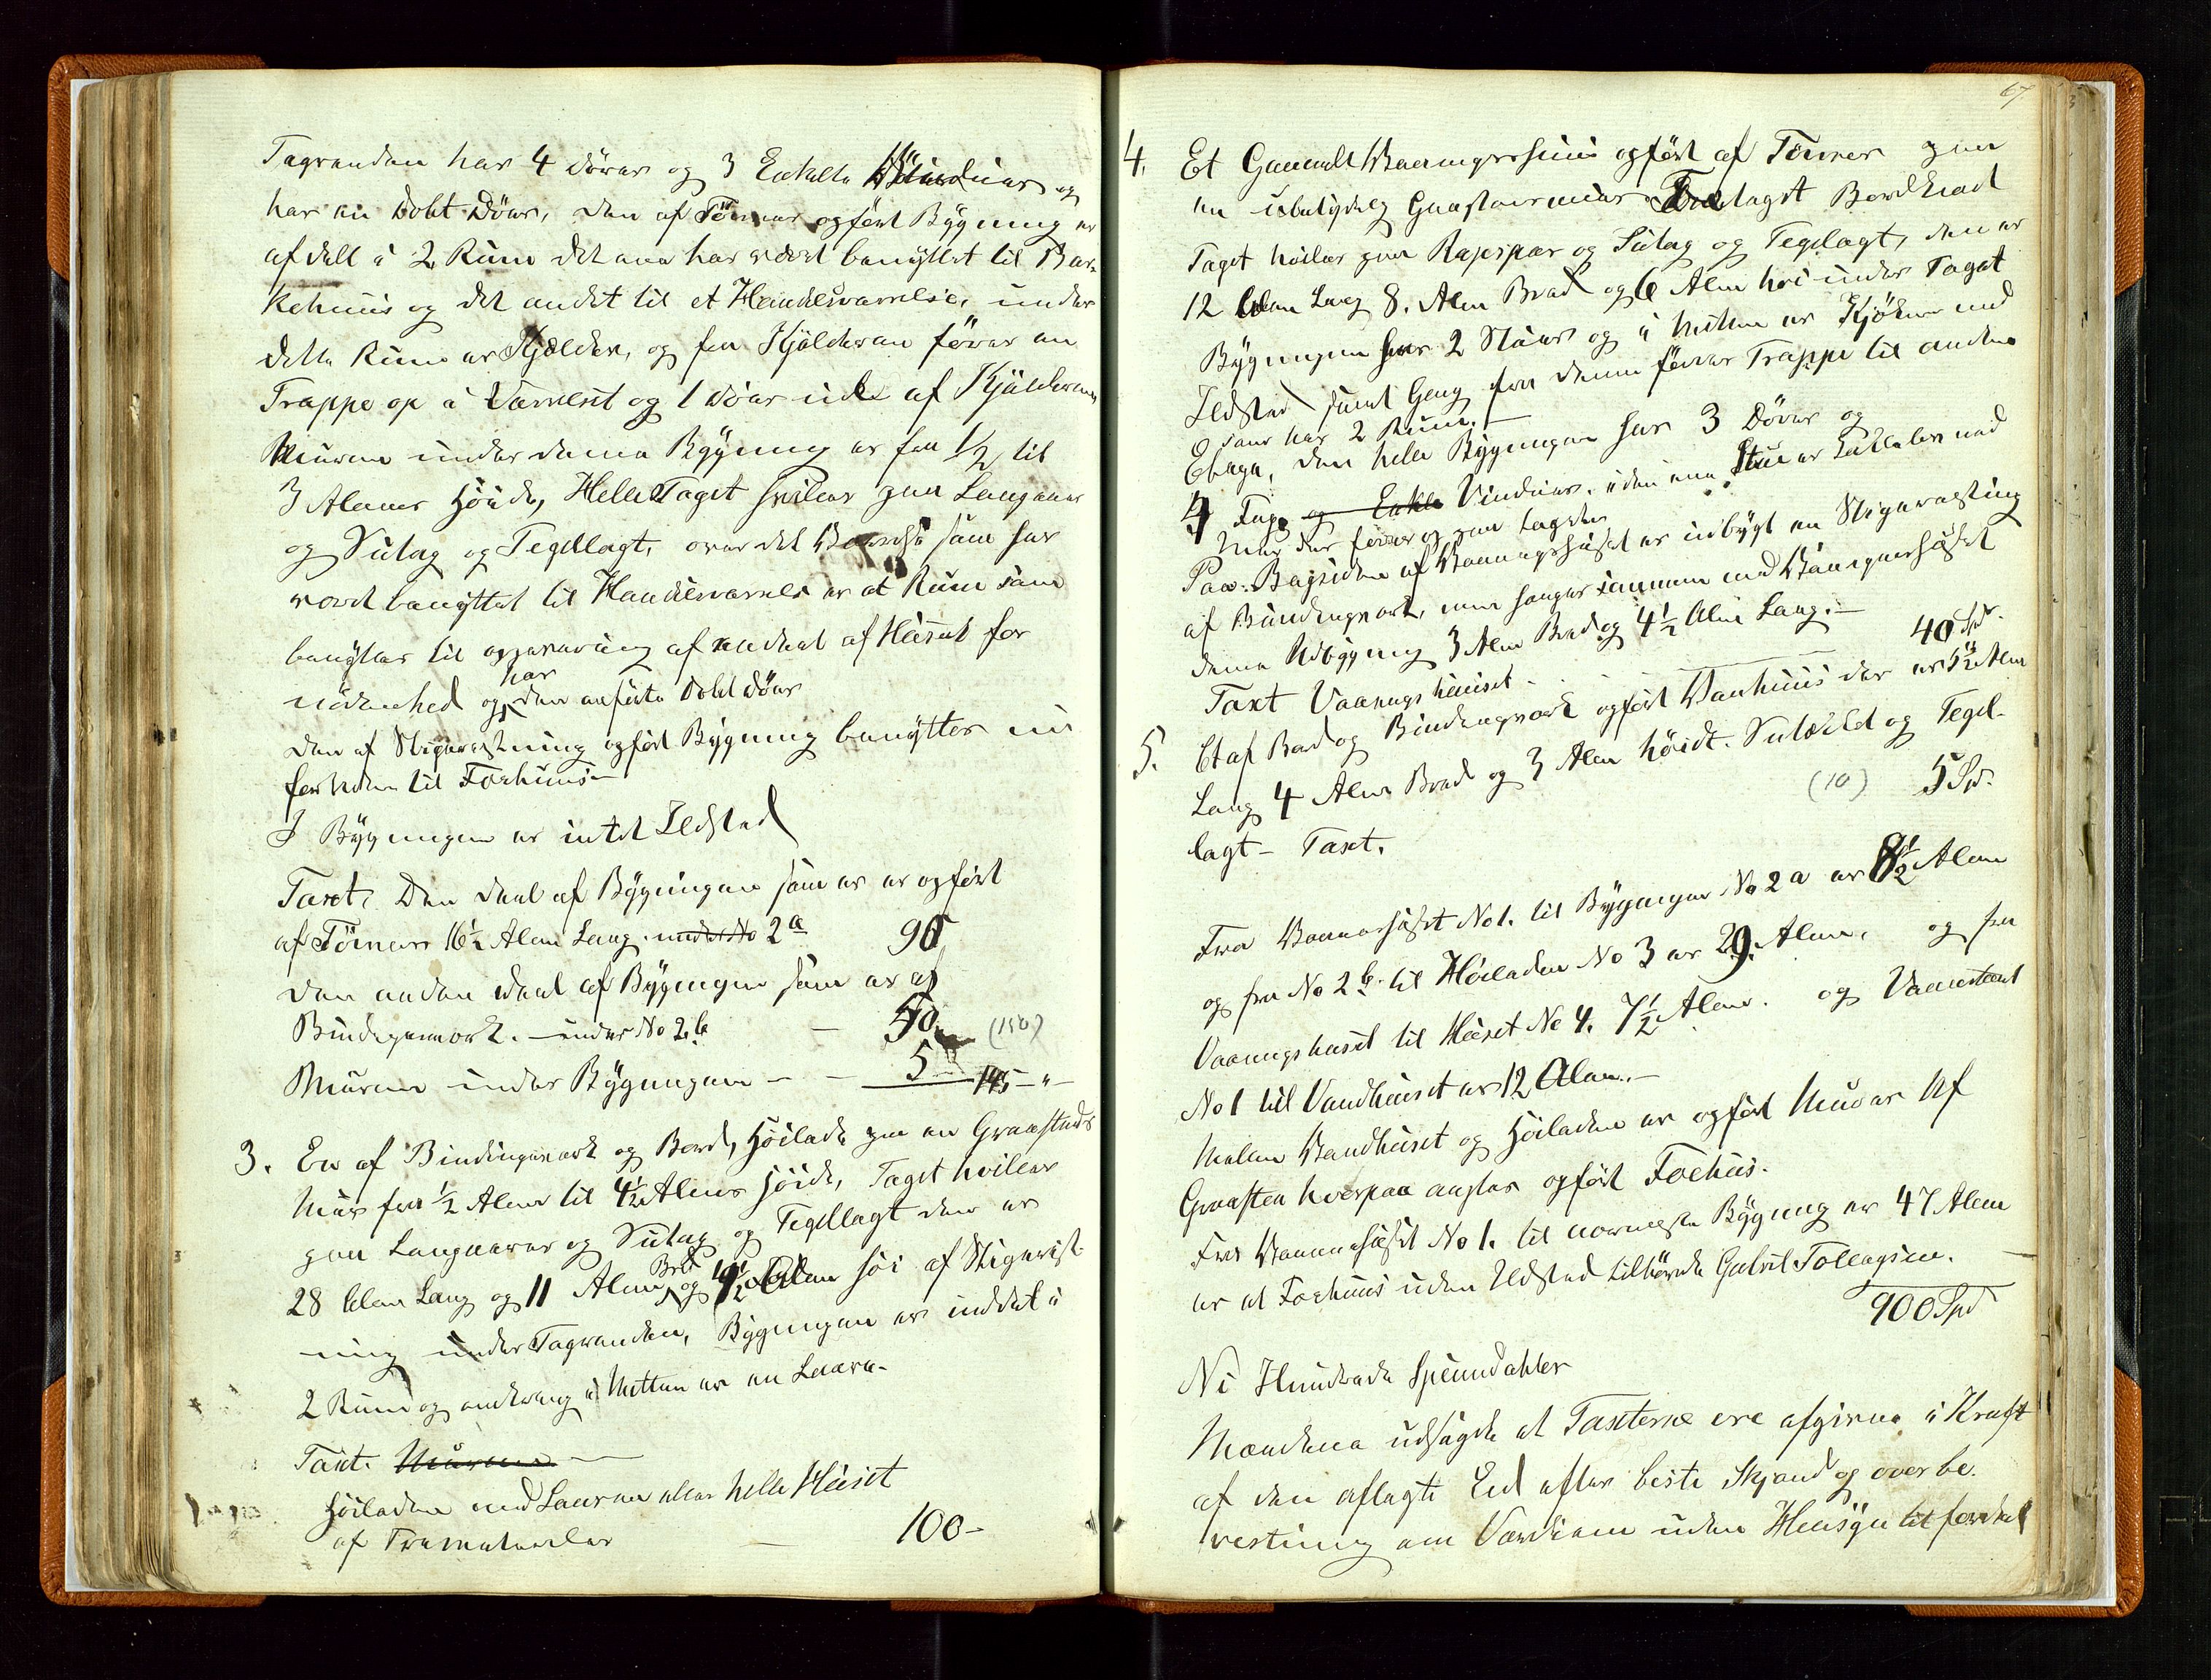 Tagranden har 4 Dörer og 3 Enkelte Vinduer og
har en Dobt Döer, den af Tömer opfört Bÿgning er
afdelt i 2 Rum det ene har været benÿttet til Bær-
kehuus og det andet til et Handelsværelse, under
dette Rum er Kjælder, og fra Kjälderen förer en
Trappe op i Værelset og 1 Döer ud af Kjälderen
Muuren under denne Bÿgning er fra 1/2 til
3 Alens Höide, Helle Taget hviler paa Langaaser
og Sutag og Tegellagt, over det som har
været benÿttet til Handelsværelse er et Rum som
benÿttes til opbevaring af endeel af Huset for
nödenhed og har den anförte Dobt Döer
Den af Stigeræstning opfört Bÿgning benÿttes nu
for tiden til Foehuus
I Bÿgningen er intet Ildsted
Taxt, Den Deel af Bÿgningen som er opfört
af Tömer 16½ Alen Lang. under No 2a 90
Den anden Deel af Bÿgningen som er af
Bindingsværk. under No 2.b — 50 (150)
Muuren under Bÿgningen — — 5 145 - " -
3. En af Bindingsværk og Bord, Höilade paa en Graasteens
Muur fra ½ Alen til 4½ Alens höide, Taget hviler
paa Langaaser og Sutag og Tegellagt den er
28 Alen Lang og 11 Alen Bred og 4½ Alen höi af Stigerist-
ning under Tagranden, Bÿgningen er inddelt i
2 Rum og i Mitten er en Laave.
Taxt. Muuren —
Höiladen med Laaven eller helle Huset
af Træmaterialer — 100 -
67
4. Et Gammelt Vaaningshuus opfört af Tömer paa
en ubetÿdelig Graasteensmuur Bordklæd
Taget hviler paa Rajspær og Sutag og Tegellagt, den er
12 Alen Lang 8. Alen Bred og 6 Alen höi under Taget
Bÿgningen har 2 Stuer og i Mitten er Kjökken med
Ildsted samt Gang fra denne förer Trappe til anden
Etage, som har 2 Rum. — den helle Bÿgningen har 3 Dörer og
4 Fag og Enkle Vinduer. i den ene Stue er Kakelovn med
Rör der förer op paa taget
Paa Bagsiden af Vaaningshuset er udbÿgt en Stigeræstning
af Bindingsværk, som hænger sammen med Vaaningshuset
denne Udbÿgning 3 Alen Bred og 4½ Alen Lang. —
Taxt Vaaningshuuset - - - 40 Spd.
5. Et af Bord og Bindingsværk opfört Vanhuus der er 5½ Alen
Lang 4 Alen Bred og 3 Alen höidt. Sutækt og Tegel-
lagt - Taxt. (10) 5 Spd.
Fra Vaaneshuset No 1. til Bÿgningen No 2 a er 8½ Alen
og fra No 2 b. til Höiladen No 3 er 29. Alen, og fra
Vaaningshuset til Huset No 4. 7½ Alen. og Vaanehuset
No 1 til Vandhuuset er 12 Alen. —
Mellem Vandhuset og Höiladen er opfört Muur af
Graasten hvorpaa agtes opfört Foehus.
Fra Vaaneshuset No 1. til nærmeste Bÿgning er 47 Alen
er et Foehuus uden Ildsted tilhörende Gabriel Tollagsen.
900 Spd
Ni Hundrede Speciedahler
Mændene udsagde at Taxterne ere afgivne i Kraft
af den aflagte Eed efter beste Skjönd og overbe-
vesning om Værdien uden Hensÿn til fordeel